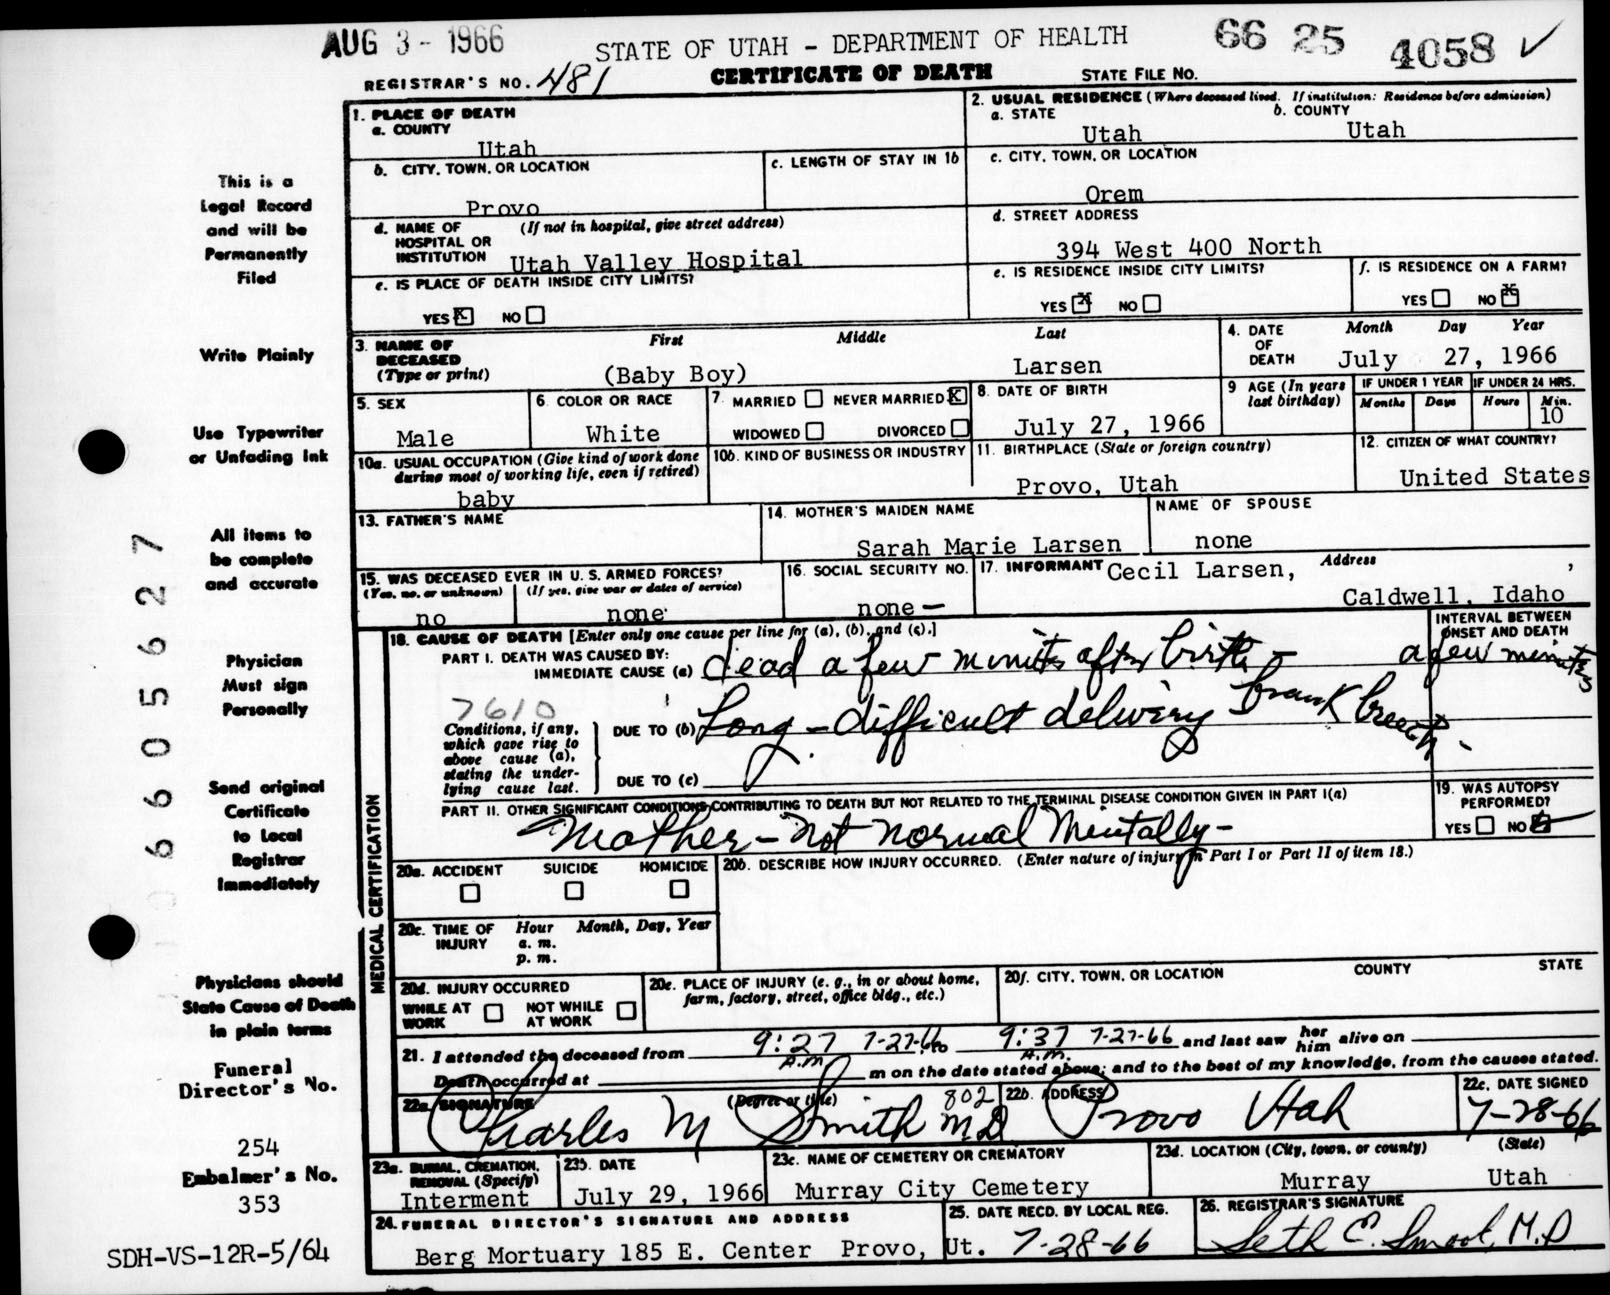 AUG 3 - 1966
STATE OF UTAH - DEPARTMENT OF HEALTH
66 25 4058 ✓
REGISTRAR'S NO. 481
CERTIFICATE OF DEATH
STATE FILE NO.
1. PLACE OF DEATH
a. COUNTY
Utah
2. USUAL RESIDENCE (Where deceased lived. If institution: Residence before admission)
a. STATE
Utah
b. COUNTY
Utah
b. CITY, TOWN, OR LOCATION
Provo
c. LENGTH OF STAY IN 1b
c. CITY, TOWN, OR LOCATION
Orem
d. NAME OF HOSPITAL OR INSTITUTION
(If not in hospital, give street address)
Utah Valley Hospital
d. STREET ADDRESS
394 West 400 North
e. IS PLACE OF DEATH INSIDE CITY LIMITS?
YES X NO
e. IS RESIDENCE INSIDE CITY LIMITS?
YES X NO
f. IS RESIDENCE ON A FARM?
YES NO X
3. NAME OF DECEASED
(Type or print)
First Middle Last
(Baby Boy) Larsen
4. DATE OF DEATH
Month Day Year
July 27, 1966
5. SEX
Male
6. COLOR OR RACE
White
7. MARRIED NEVER MARRIED X
WIDOWED DIVORCED
8. DATE OF BIRTH
July 27, 1966
9 AGE (In years last birthday)
IF UNDER 1 YEAR
Months Days
IF UNDER 24 HRS.
Hours Min.
10
10a. USUAL OCCUPATION (Give kind of work done during most of working life, even if retired)
baby
10b. KIND OF BUSINESS OR INDUSTRY
11. BIRTHPLACE (State or foreign country)
Provo, Utah
12. CITIZEN OF WHAT COUNTRY?
United States
13. FATHER'S NAME
14. MOTHER'S MAIDEN NAME
Sarah Marie Larsen
NAME OF SPOUSE
none
15. WAS DECEASED EVER IN U. S. ARMED FORCES?
(Yes, no, or unknown) (If yes, give war or dates of service)
no none
16. SOCIAL SECURITY NO.
none —
17. INFORMANT Address
Cecil Larsen,
Caldwell, Idaho
MEDICAL CERTIFICATION
18. CAUSE OF DEATH [Enter only one cause per line for (a), (b), and (c).]
INTERVAL BETWEEN ONSET AND DEATH
PART I. DEATH WAS CAUSED BY:
IMMEDIATE CAUSE (a) dead a few minutes after birth - a few minutes
7610
Conditions, if any, which gave rise to above cause (a), stating the underlying cause last.
DUE TO (b) Long - difficult delivery frank breech -
DUE TO (c)
PART II. OTHER SIGNIFICANT CONDITIONS CONTRIBUTING TO DEATH BUT NOT RELATED TO THE TERMINAL DISEASE CONDITION GIVEN IN PART I(a)
Mother - not normal mentally -
19. WAS AUTOPSY PERFORMED?
YES NO X
20a. ACCIDENT SUICIDE HOMICIDE
20b. DESCRIBE HOW INJURY OCCURRED. (Enter nature of injury in Part I or Part II of item 18.)
20c. TIME OF INJURY
Hour Month, Day, Year
a. m.
p. m.
20d. INJURY OCCURRED
WHILE AT WORK NOT WHILE AT WORK
20e. PLACE OF INJURY (e. g., in or about home, farm, factory, street, office bldg., etc.)
20f. CITY, TOWN, OR LOCATION COUNTY STATE
21. I attended the deceased from 9:27 A.M. 7-27-66 to 9:37 A.M. 7-27-66 and last saw her him alive on
Death occurred at m on the date stated above; and to the best of my knowledge, from the causes stated.
22a. SIGNATURE (Degree or title)
Charles M Smith M.D. 802
22b. ADDRESS
Provo Utah
22c. DATE SIGNED
7-28-66
23a. BURIAL, CREMATION, REMOVAL (Specify)
Interment
23b. DATE
July 29, 1966
23c. NAME OF CEMETERY OR CREMATORY
Murray City Cemetery
23d. LOCATION (City, town, or county) (State)
Murray Utah
24. FUNERAL DIRECTOR'S SIGNATURE AND ADDRESS
Berg Mortuary 185 E. Center Provo, Ut.
25. DATE RECD. BY LOCAL REG.
7-28-66
26. REGISTRAR'S SIGNATURE
Seth E. Smoot, M.D
This is a
Legal Record
and will be
Permanently
Filed
Write Plainly
Use Typewriter
or Unfading Ink
All items to
be complete
and accurate
Physician
Must sign
Personally
Send original
Certificate
to Local
Registrar
Immediately
Physicians should
State Cause of Death
in plain terms
Funeral
Director's No.
254
Embalmer's No.
353
SDH-VS-12R-5/64
06605627